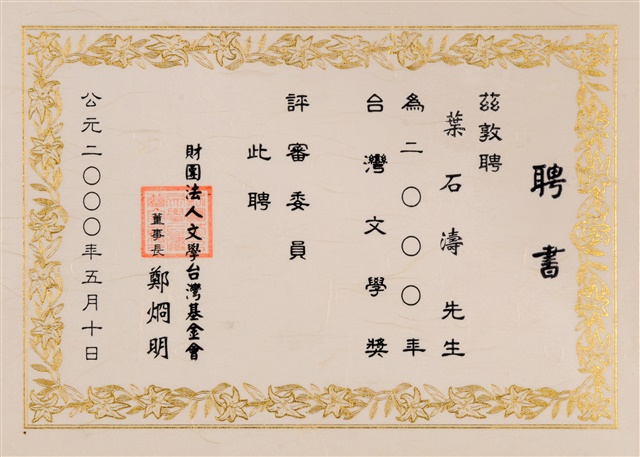 聘書
茲敦聘
葉石濤先生
為二〇〇〇年
台灣文學獎
評審委員
此聘
財團法人文學台灣基金會
董事長 鄭烱明
公元二〇〇〇年五月十日